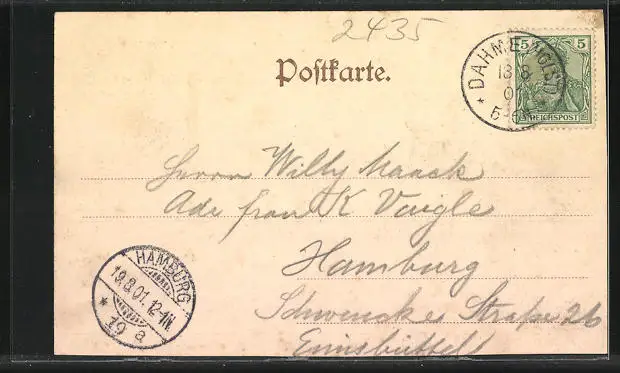 2435
Postkarte.
5 5
REICHSPOST
18 8
01
5-6N
Herrn Willy Maack
Adr frau K Vaigle
Hamburg
Schwencke Straße 26
Eimsbüttel
HAMBURG
19.8.01. 12-1N.
* 19 a